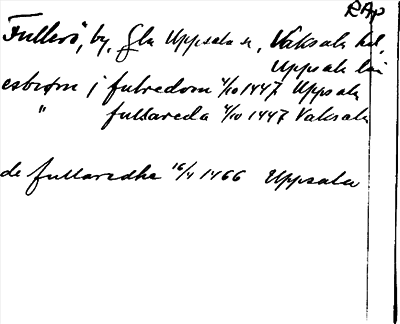 RAp
Fullerö, by, Gla Uppsala sn, Vaksala hd,
Uppsala län
esbiørn j fulredom 4/10 1447 Uppsala
" fullareda 4/10 1447 Vaksala
de fullaredhe 16/4 1466 Uppsala